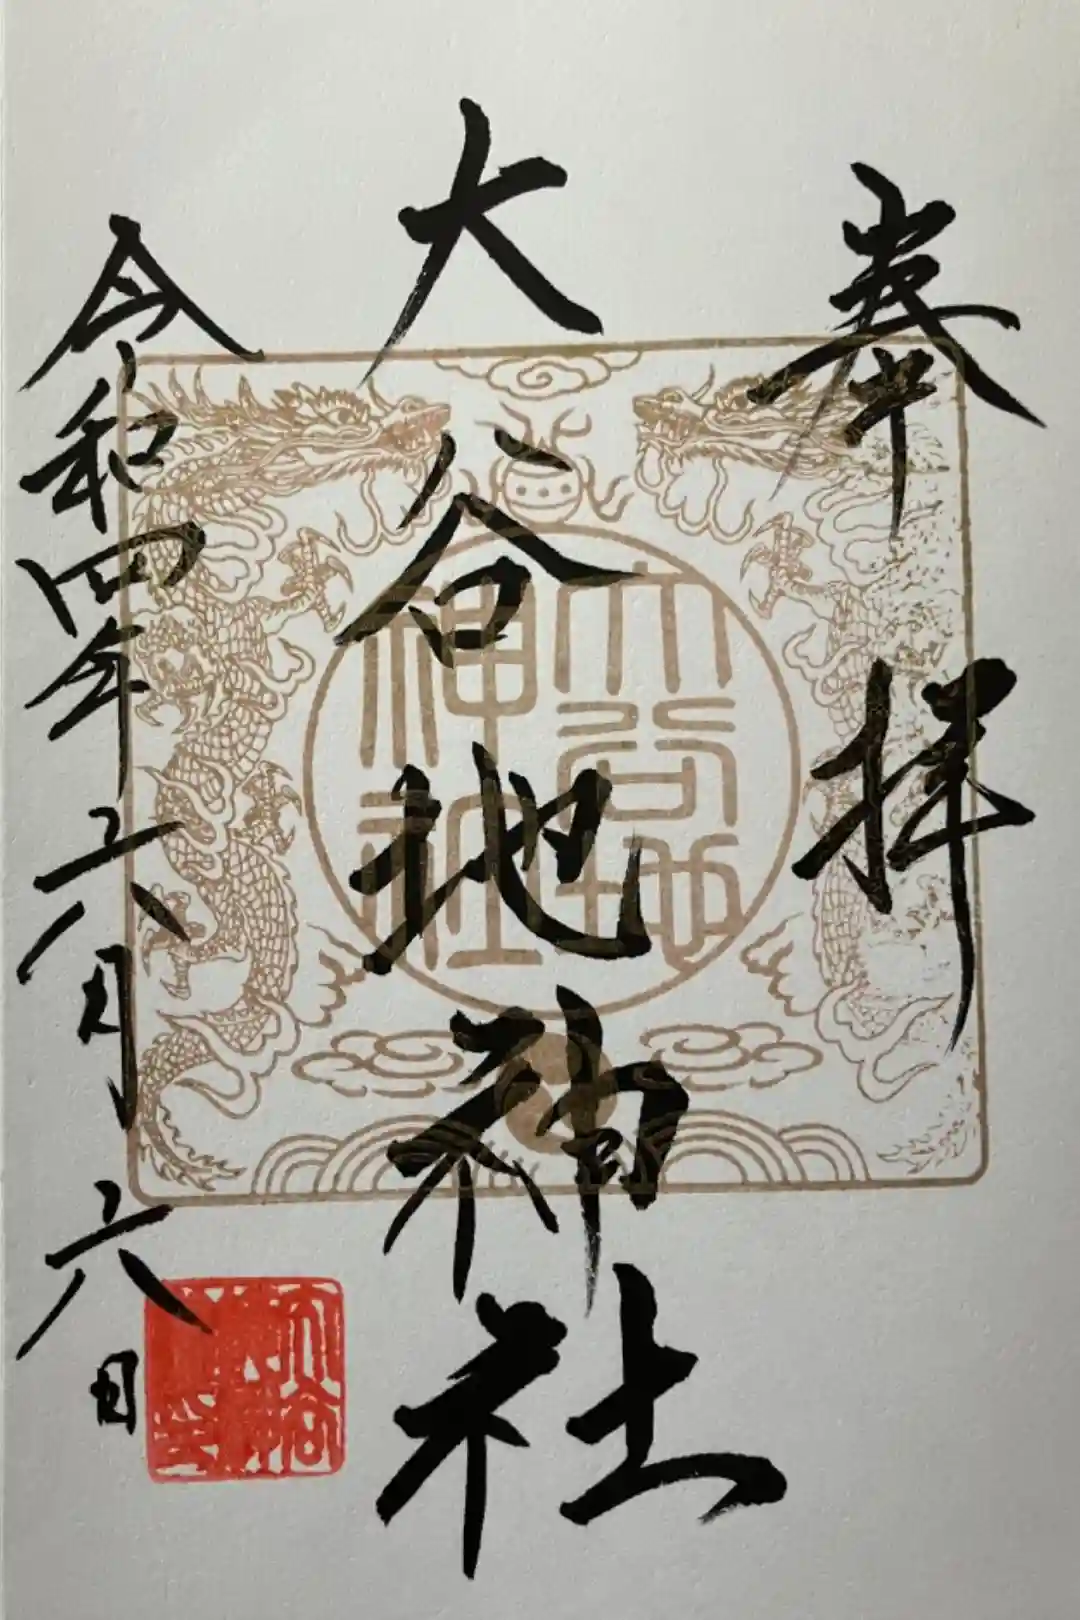 奉拝
大谷地神社
令和四年六月六日
大谷地
神社